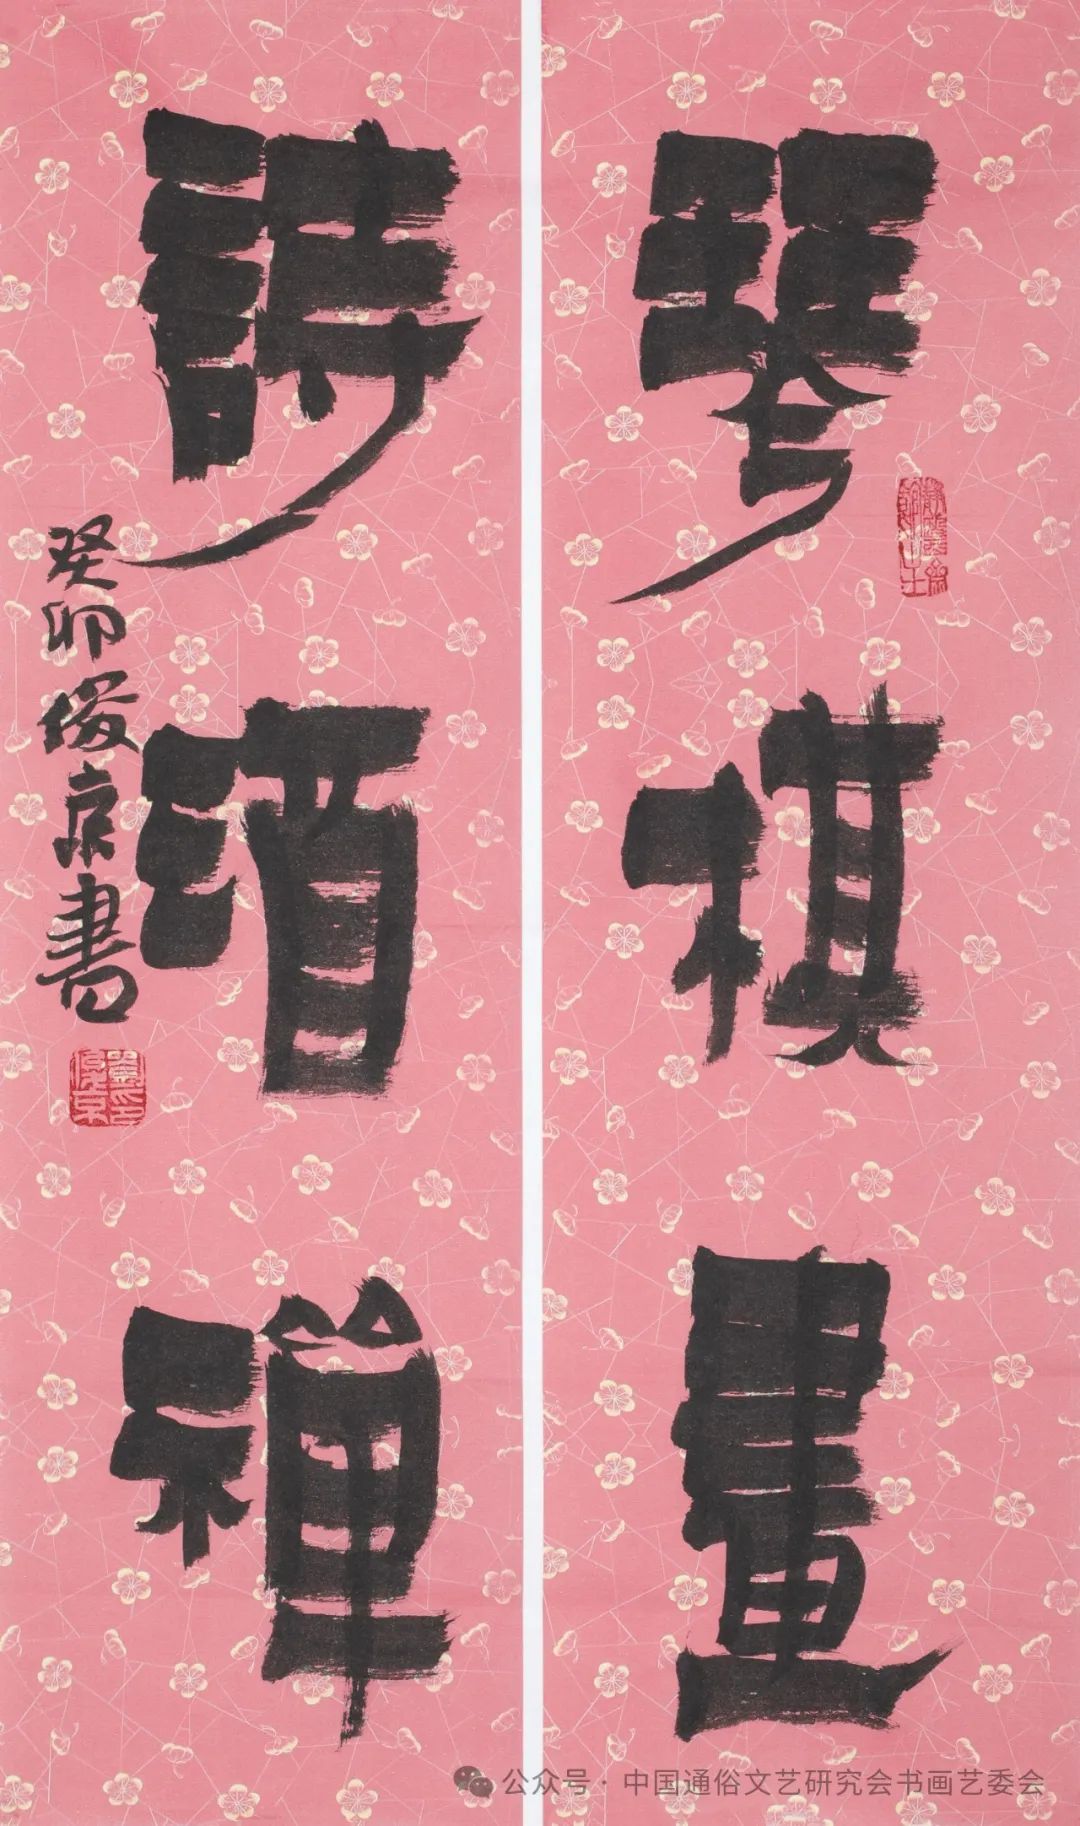 琴棋畫
詩酒禪
癸卯俊京書
公众号·中国通俗文艺研究会书画艺委会